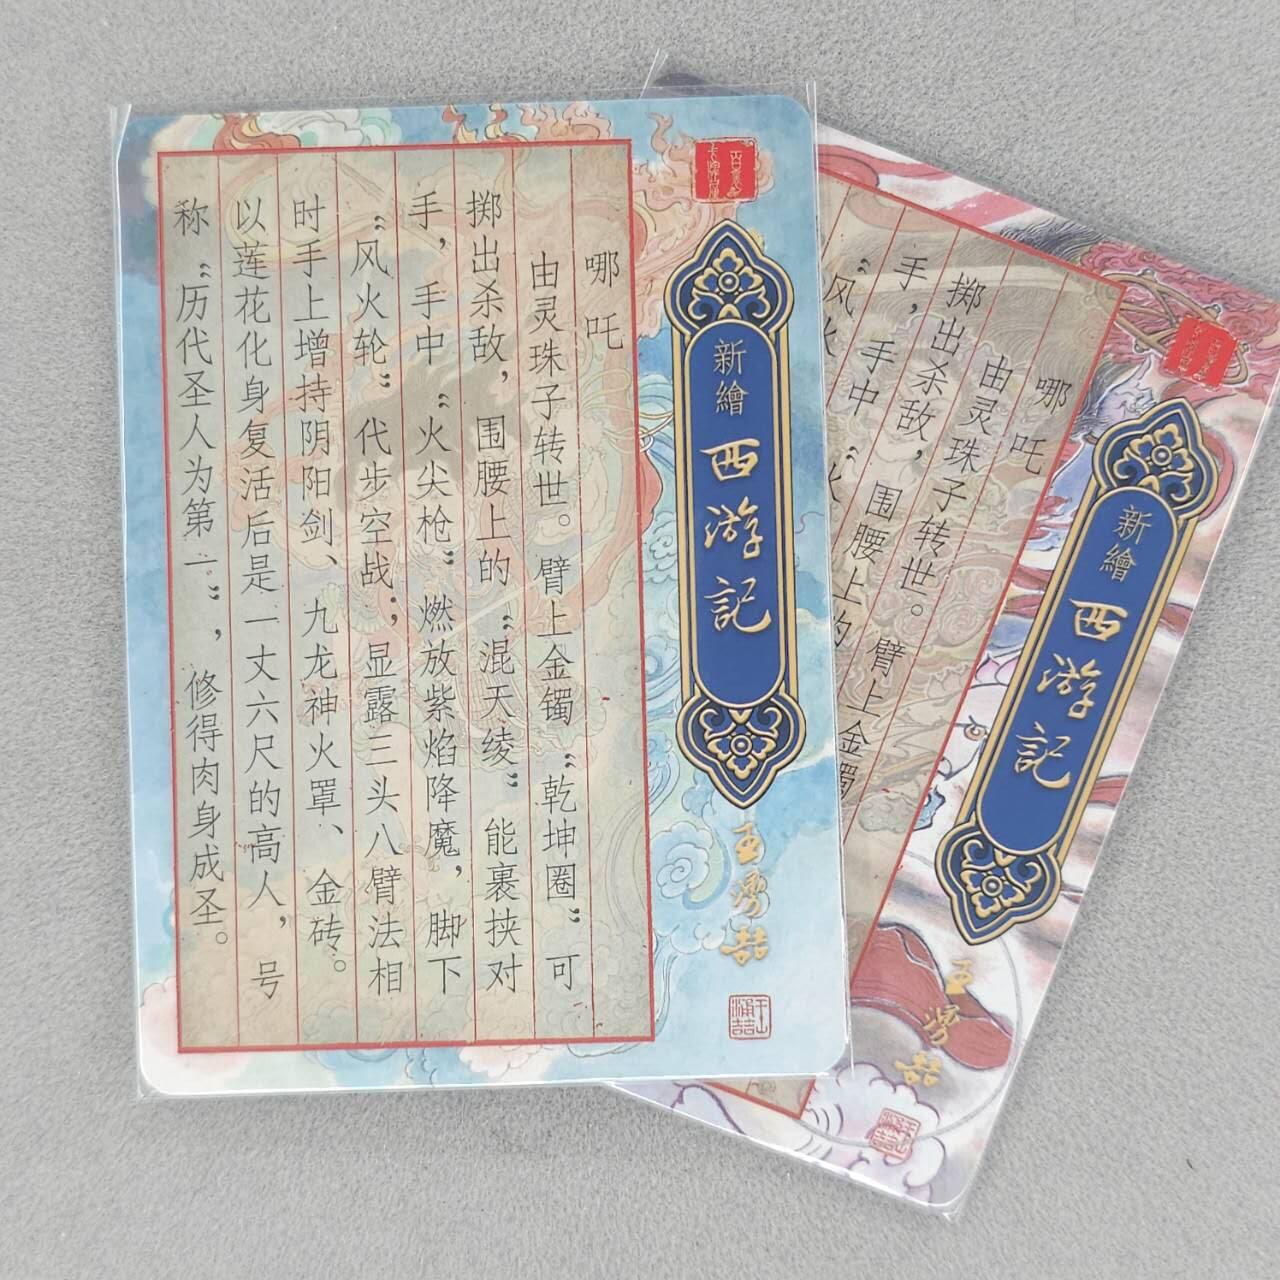 哪吒
由灵珠子转世。臂上金镯“乾坤圈”可
掷出杀敌，围腰上的“混天绫”能裹挟对
手，手中“火尖枪”燃放紫焰降魔，脚下
“风火轮”代步空战；显露三头八臂法相
时手上增持阴阳剑、九龙神火罩、金砖。
以莲花化身复活后是一丈六尺的高人，号
称“历代圣人为第一”，修得肉身成圣。
新繪
西游記
哪吒
由灵珠子转世。臂上金镯
掷出杀敌，围腰上的
手，手中“火
“风火
新繪
西游記